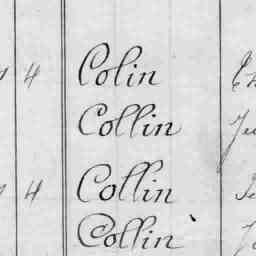 4 Colin
Collin
4 Collin
Collin